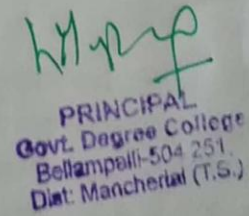 PRINCIPAL
Govt. Degree College
Bellampalli-504 251.
Dist: Mancherial (T.S.)